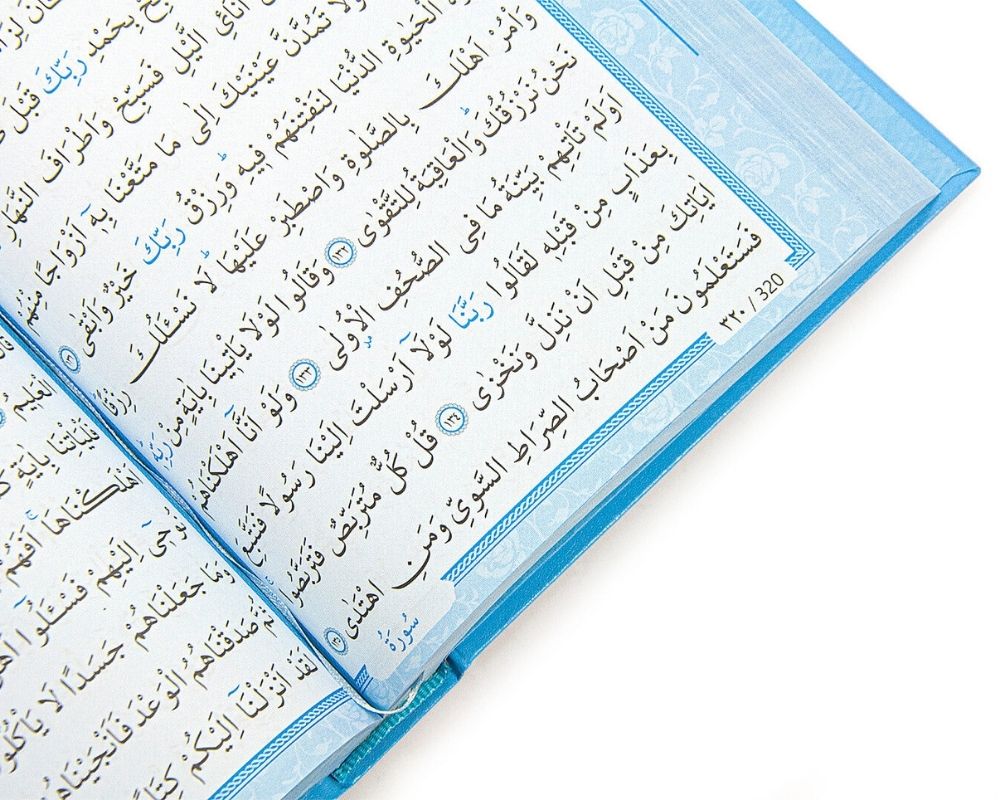 بِحَمْدِ رَبِّكَ قَبْلَ
اٰنَٓائِ الَّيْلِ فَسَبِّحْ وَاَطْرَافَ النَّهَارِ
وَلَا تَمُدَّنَّ عَيْنَيْكَ اِلٰى مَا مَتَّعْنَا بِهٖٓ اَزْوَاجًا مِنْهُمْ
الْحَيٰوةِ الدُّنْيَا لِنَفْتِنَهُمْ فِيهِ وَرِزْقُ رَبِّكَ خَيْرٌ وَاَبْقٰى ١٣١
وَأْمُرْ اَهْلَكَ بِالصَّلٰوةِ وَاصْطَبِرْ عَلَيْهَا لَا نَسْـَٔلُكَ رِزْقًا
نَحْنُ نَرْزُقُكَ وَالْعَاقِبَةُ لِلتَّقْوٰى ١٣٢ وَقَالُوا لَوْلَا يَأْتِينَا بِاٰيَةٍ مِنْ رَبِّهِ
اَوَلَمْ تَأْتِهِمْ بَيِّنَةُ مَا فِى الصُّحُفِ الْاُولٰى ١٣٣ وَلَوْ اَنَّٓا اَهْلَكْنَاهُمْ
بِعَذَابٍ مِنْ قَبْلِهِ لَقَالُوا رَبَّنَا لَوْلَٓا اَرْسَلْتَ اِلَيْنَا رَسُولًا فَنَتَّبِعَ
اٰيَاتِكَ مِنْ قَبْلِ اَنْ نَذِلَّ وَنَخْزٰى ١٣٤ قُلْ كُلٌّ مُتَرَبِّصٌ فَتَرَبَّصُوا
فَسَتَعْلَمُونَ مَنْ اَصْحَابُ الصِّرَاطِ السَّوِيِّ وَمَنِ اهْتَدٰى ١٣٥
٣٢٠ / 320
سُورَةُ
الْعَلِيمُ
فَلْيَأْتِنَا بِاٰيَةٍ
اَهْلَكْنَاهَا اَفَهُمْ
نُوحِٓى اِلَيْهِمْ فَسْـَٔلُٓوا اَهْلَ
وَمَا جَعَلْنَاهُمْ جَسَدًا لَا يَأْكُلُونَ
ثُمَّ صَدَقْنَاهُمُ الْوَعْدَ فَاَنْجَيْنَاهُمْ
لَقَدْ اَنْزَلْنَٓا اِلَيْكُمْ كِتَابًا